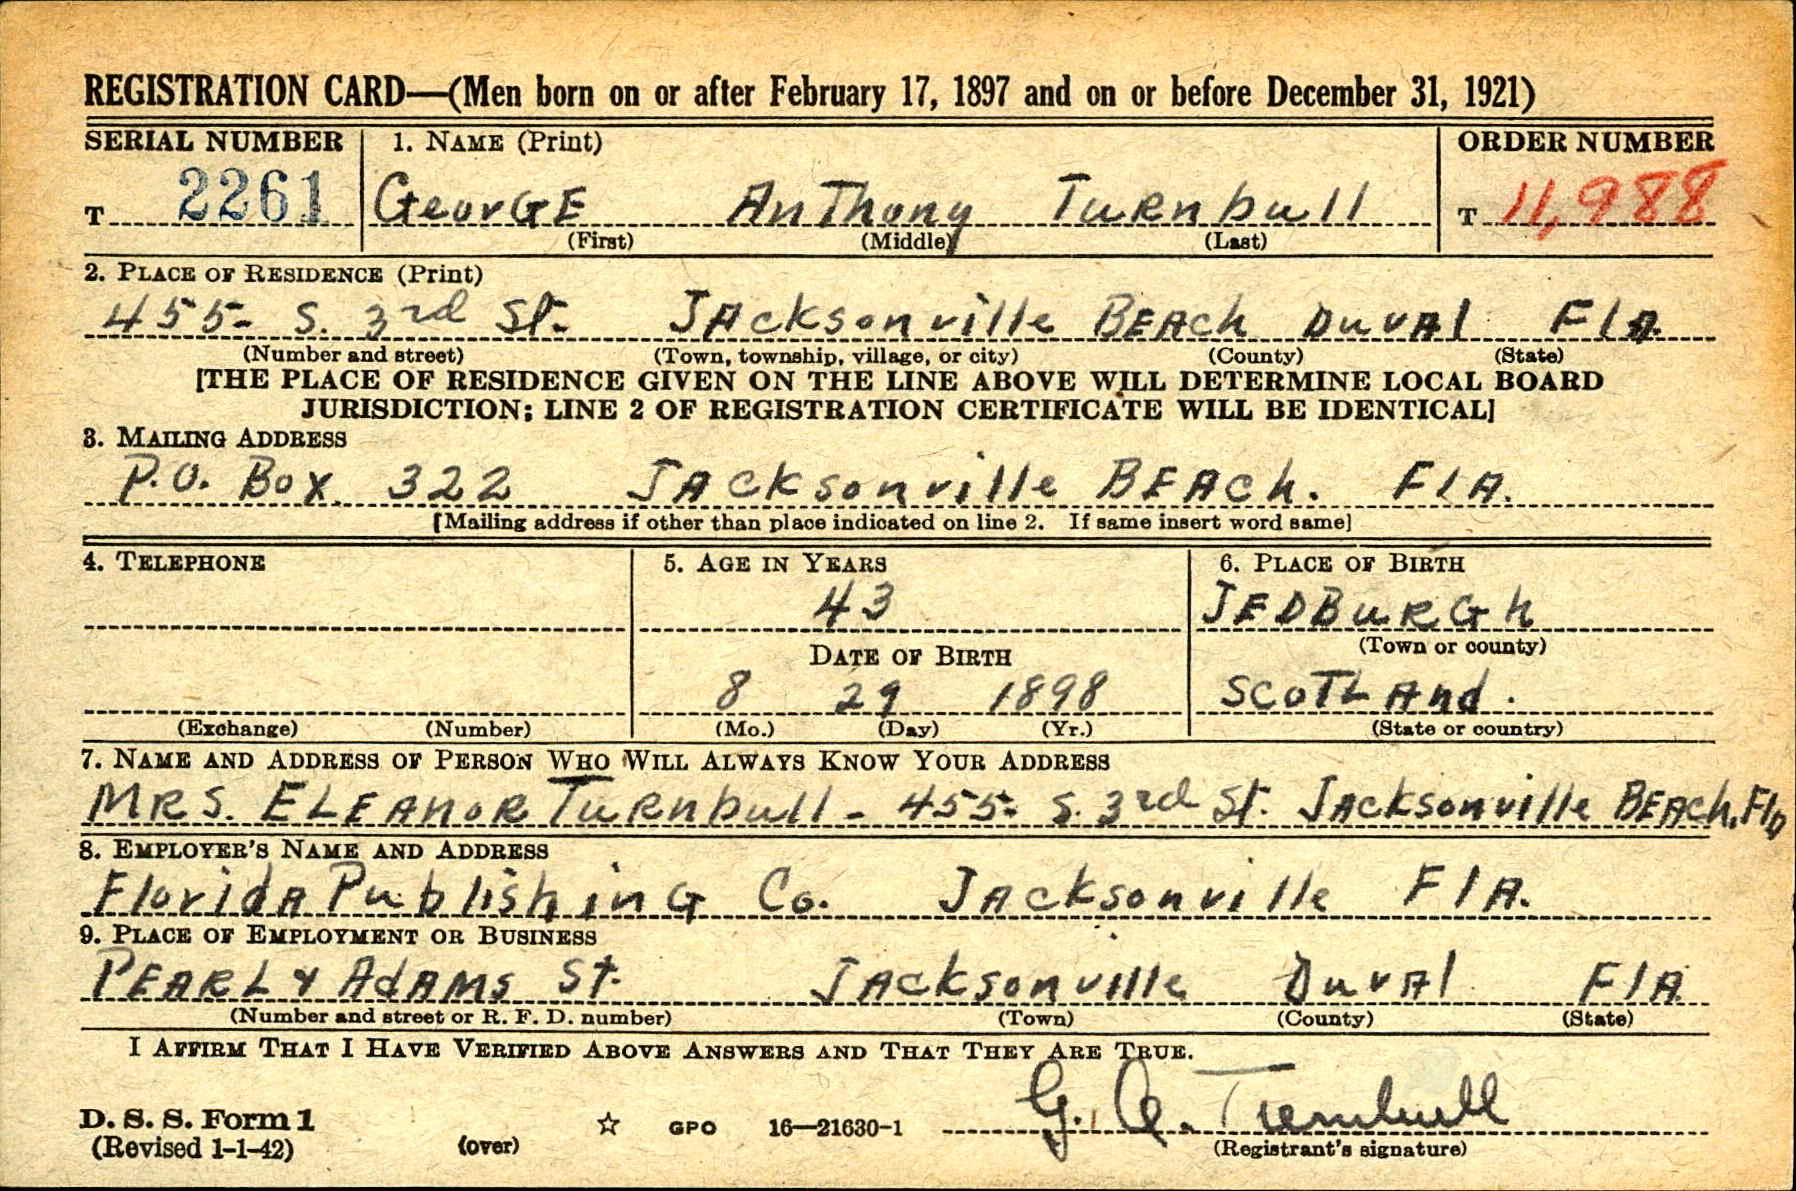 REGISTRATION CARD—(Men born on or after February 17, 1897 and on or before December 31, 1921)
SERIAL NUMBER 1. NAME (Print) ORDER NUMBER
T 2261 GeorGE AnThony TuRnbull T 11,988
(First) (Middle) (Last)
2. PLACE OF RESIDENCE (Print)
455- S. 3rd St. JAcksonville BEAch DuvAl FlA.
(Number and street) (Town, township, village, or city) (County) (State)
[THE PLACE OF RESIDENCE GIVEN ON THE LINE ABOVE WILL DETERMINE LOCAL BOARD
JURISDICTION; LINE 2 OF REGISTRATION CERTIFICATE WILL BE IDENTICAL]
3. MAILING ADDRESS
P.O. Box. 322 JAcksonville BEAch. FlA.
[Mailing address if other than place indicated on line 2. If same insert word same]
4. TELEPHONE 5. AGE IN YEARS 6. PLACE OF BIRTH
43 JEDBuRGh
DATE OF BIRTH (Town or county)
8 29 1898 ScoTLAnd.
(Exchange) (Number) (Mo.) (Day) (Yr.) (State or country)
7. NAME AND ADDRESS OF PERSON WHO WILL ALWAYS KNOW YOUR ADDRESS
MRS. ELEAnoR TuRnbull - 455- S. 3rd St. JAcksonville BEAch, Fla
8. EMPLOYER'S NAME AND ADDRESS
FloridA PublishinG Co. JAcksonville FlA.
9. PLACE OF EMPLOYMENT OR BUSINESS
PEARL & AdAMs St. JAcksonville DuvAl FlA
(Number and street or R. F. D. number) (Town) (County) (State)
I AFFIRM THAT I HAVE VERIFIED ABOVE ANSWERS AND THAT THEY ARE TRUE.
G. A. Turnbull
D. S. S. Form 1
(Revised 1-1-42) (over) ☆ GPO 16—21630-1 (Registrant's signature)